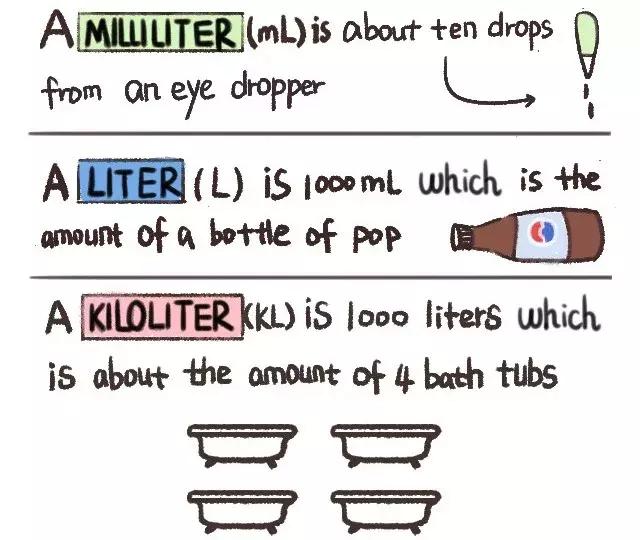 A MILLILITER (mL) is about ten drops
from an eye dropper
A LITER (L) is 1000 mL which is the
amount of a bottle of pop
A KILOLITER (KL) is 1000 liters which
is about the amount of 4 bath tubs